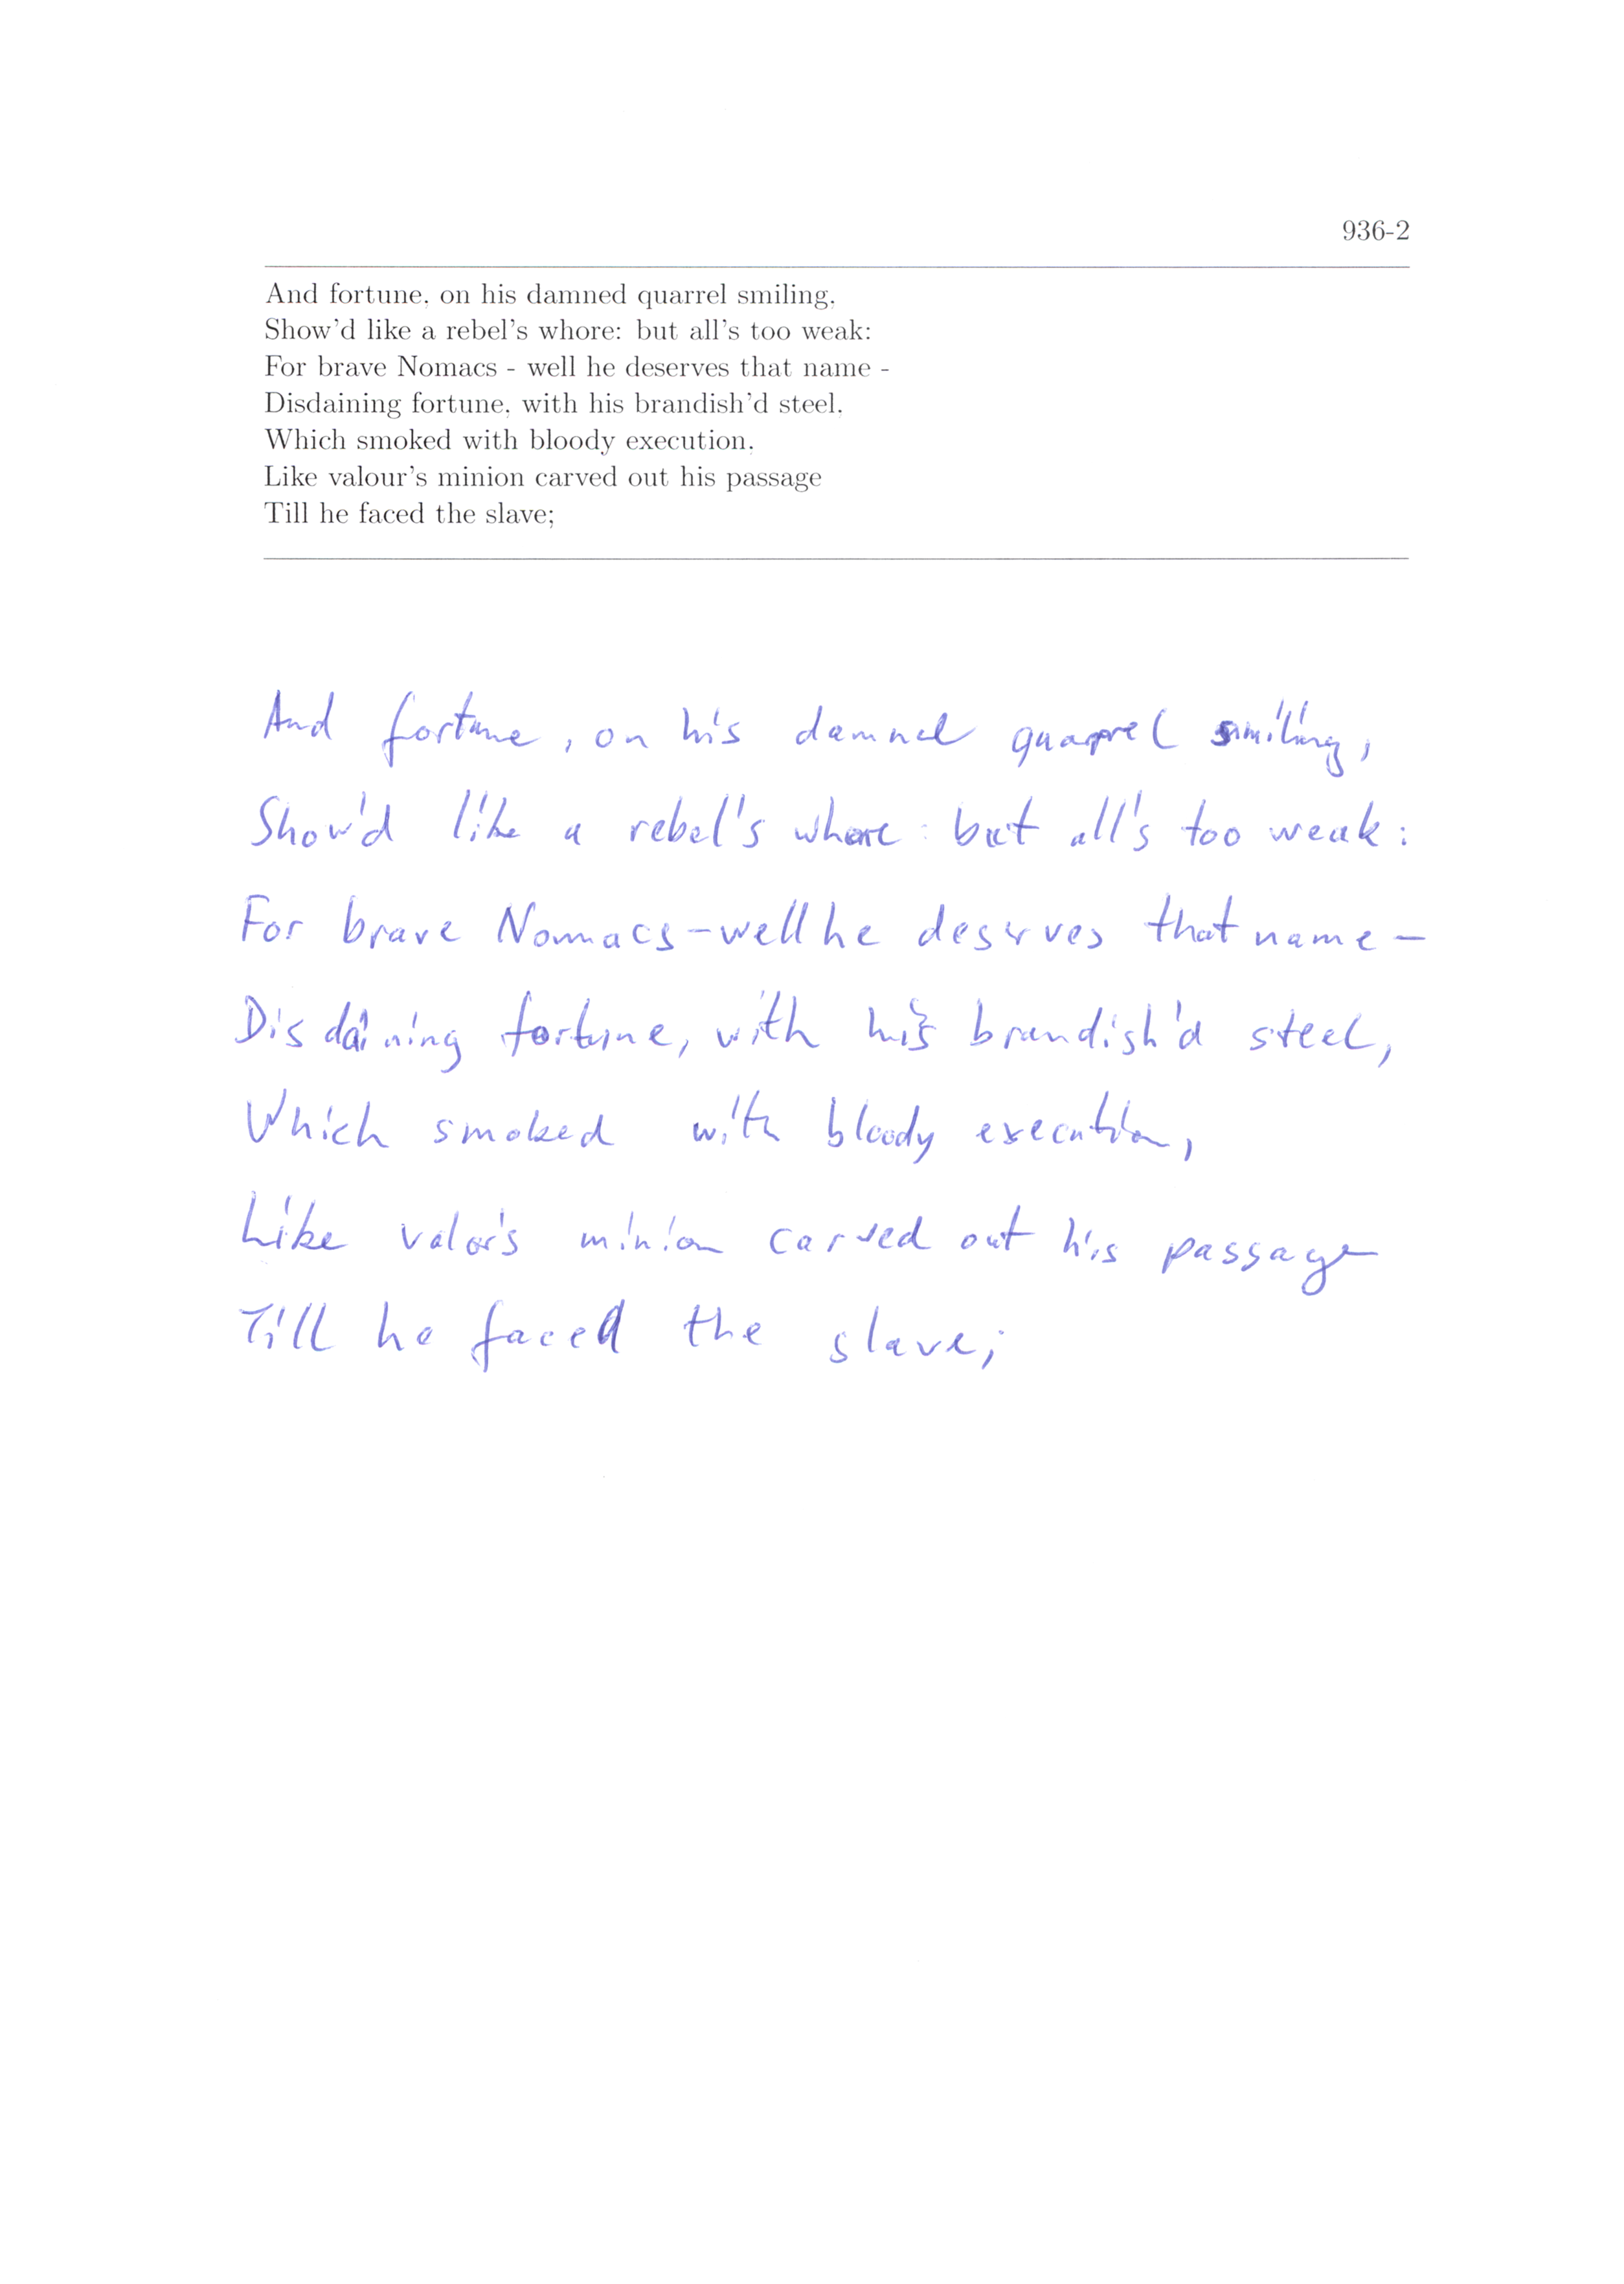 936-2
And fortune, on his damned quarrel smiling,
Show'd like a rebel's whore: but all's too weak:
For brave Nomacs - well he deserves that name -
Disdaining fortune, with his brandish'd steel,
Which smoked with bloody execution,
Like valour's minion carved out his passage
Till he faced the slave;
And fortune, on his damned quarrel smiling,
Show'd like a rebel's whore: but all's too weak:
For brave Nomacs - well he deserves that name -
Disdaining fortune, with his brandish'd steel,
Which smoked with bloody execution,
Like valor's minion carved out his passage
Till he faced the slave;